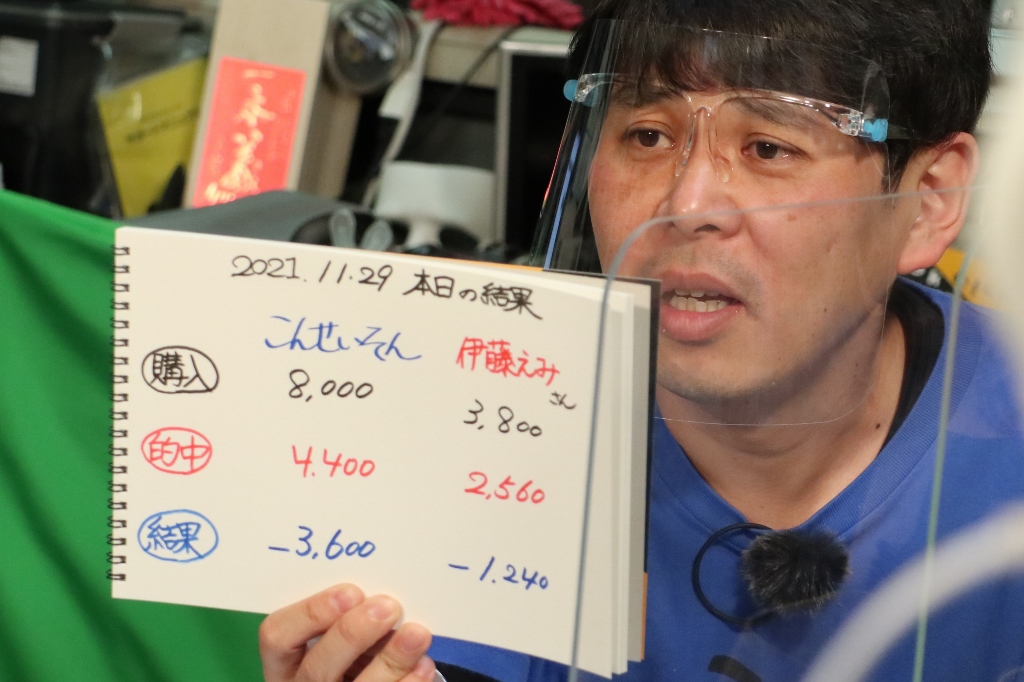 2021.11.29 本日の結果
こんせいそん 伊藤えみさん
購入 8,000 3,800
的中 4.400 2,560
結果 -3,600 -1.240